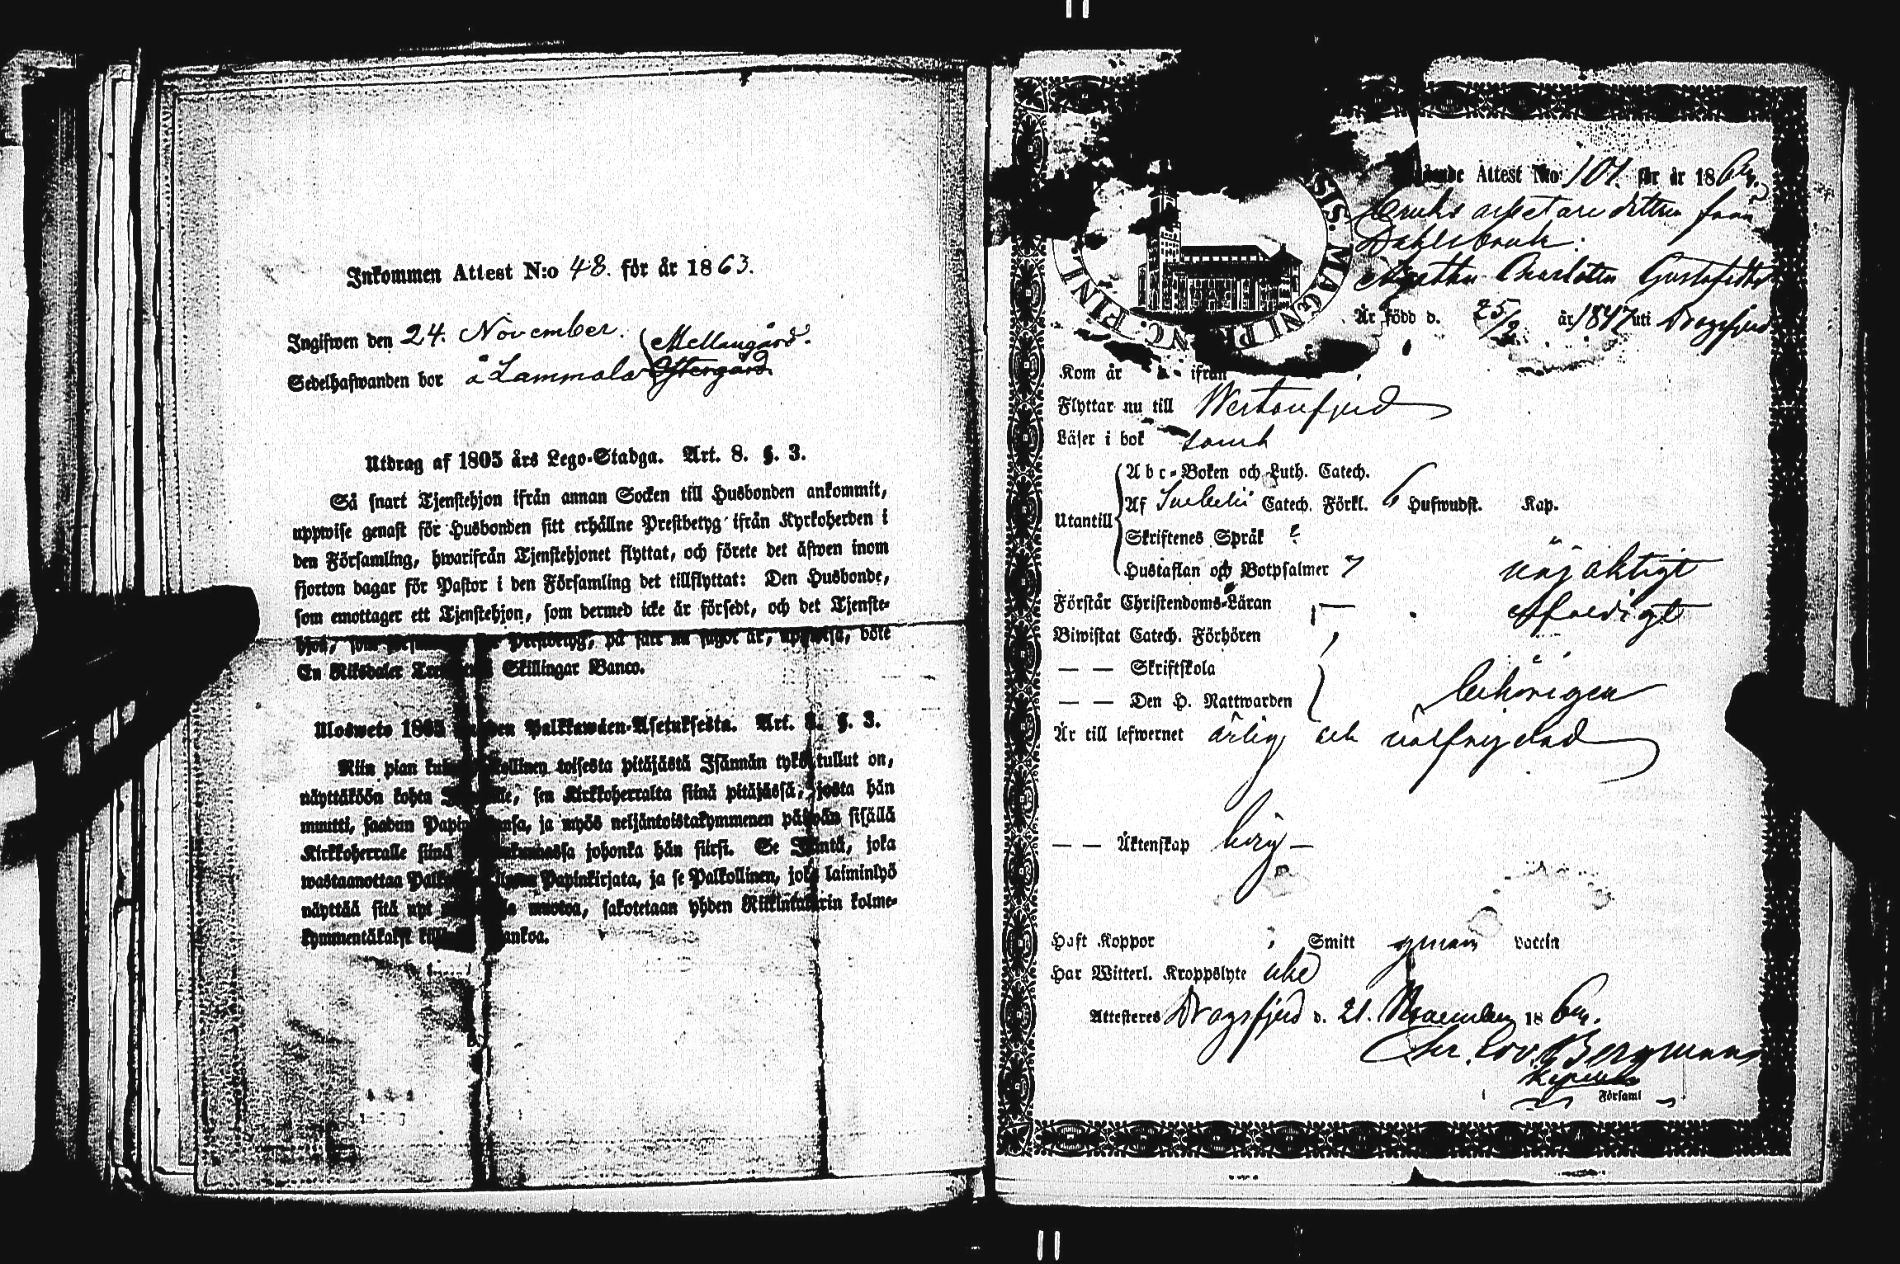 Inkommen Attest N:o 48. för år 1863.
Ingifwen den 24. November.
Mellangård.
Sedelhafwanden bor å Lammala Östergård
Utdrag af 1805 års Lego-Stadga. Art. 8. §. 3.
Så snart Tjenstehjon ifrån annan Socken till Husbonden ankommit,
uppwise genast för Husbonden sitt erhållne Prestbetyg ifrån Kyrkoherden i
den Församling, hwarifrån Tjenstehjonet flyttat, och förete det äfwen inom
fjorton dagar för Pastor i den Församling det tillflyttat: Den Husbonde,
som emottager ett Tjenstehjon, som dermed icke är försedt, och det Tjenste-
hjon, som Prestbetyg, på sätt nu sagdt är, uppwisa, böte
En Riksdaler Skillingar Banco.
Ulosweto 1805 Palkkawäen-Asetuksesta. Art. 8. §. 3.
Niin pian toisesta pitäjästä Isännän tykö tullut on,
näyttäköön kohta sen Kirkkoherralta siinä pitäjässä, josta hän
muutti, saadun ja myös neljäntoistakymmenen päiwän sisällä
Kirkkoherralle siinä johonka hän siirsi. Se Isäntä, joka
wastaanottaa Papinkirjata, ja se Palkollinen, joka laiminlyö
näyttää sitä nyt muotoa, sakotetaan yhden Riikintalarin kolme-
kymmentäkaksi
PRINC. FINL MAGNI SIS.
Attest N:o 101. för år 186
Bruks arbetare dottren från
Dahlsbruk:
Agatha Charlotta Gustafsdtr
Är född d. 25/2 år 1847 uti Dragsfjerd
Kom år ifrån
Flyttar nu till Westanfjerd
Läser i bok samt
Abc-Boken och Luth. Catech.
Utantill Af Svebelii Catech. Förkl. 6 Hufwudst. Kap.
Skriftenes Språk
Hustaflan och Botpsalmer 7
Förstår Christendoms-Läran
Biwistat Catech. Förhören
— — Skriftskola
— — Den H. Nattwarden behörigen
Är till lefwernet ärlig och wälfrejdad
— — Äktenskap ledig —
Haft Koppor Smitt genom vaccin
Har Witterl. Kroppslyte icke
Attesteres Dragsfjerd d. 21. November 186
Bergman
Församl